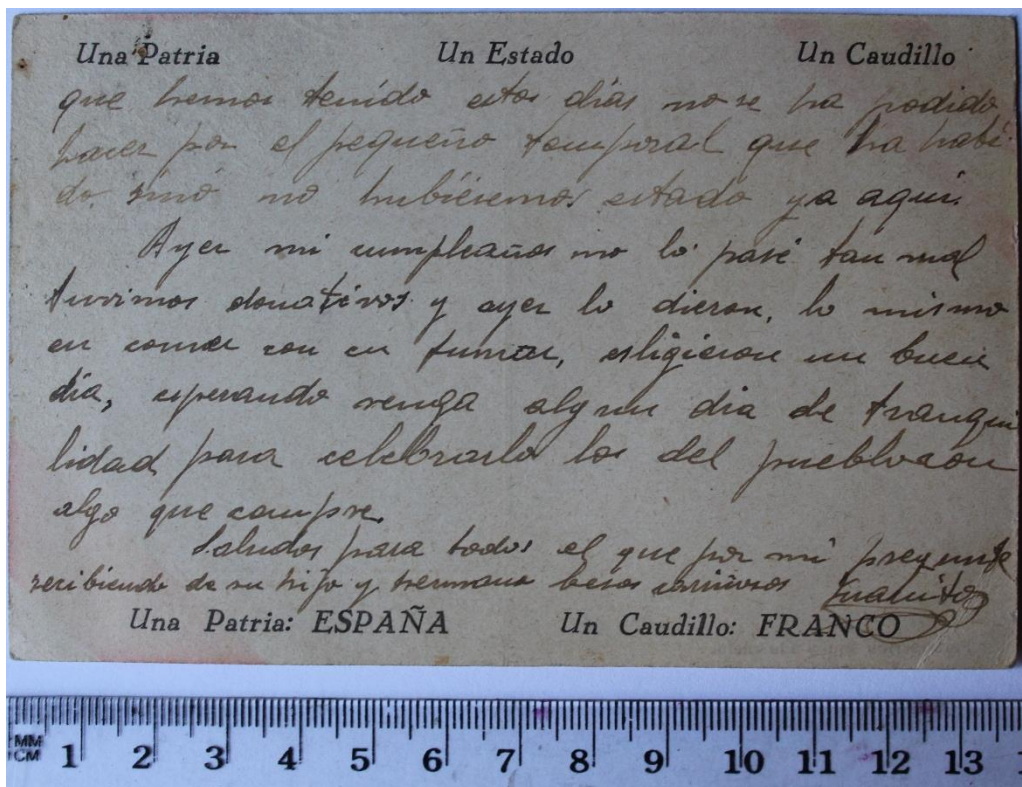 Una Patria Un Estado Un Caudillo
que hemos tenido estos días no se ha podido
hacer por el pequeño temporal que ha habi-
do sinó no hubiésemos estado ya aquí.
Ayer mi cumpleaños no lo pasé tan mal
tuvimos donativos y ayer lo dieron, lo mismo
en comer con en fumar, esligieron un buen
día, esperando venga algun dia de tranqui
lidad para celebrarlo los del pueblo con
algo que compre.
Saludos para todos el que por mi pregunte
recibiendo de su hijo y hermano besos cariñosos Juanito
Una Patria: ESPAÑA Un Caudillo: FRANCO
MM
CM 1 2 3 4 5 6 7 8 9 10 11 12 13